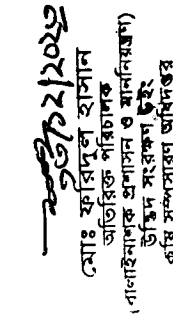 ১৩/১২/২০২৩
মোঃ ফরিদুল হাসান
অতিরিক্ত পরিচালক
(বালাইনাশক প্রশাসন ও মাননিয়ন্ত্রণ)
উদ্ভিদ সংরক্ষণ উইং
কৃষি সম্প্রসারণ অধিদপ্তর